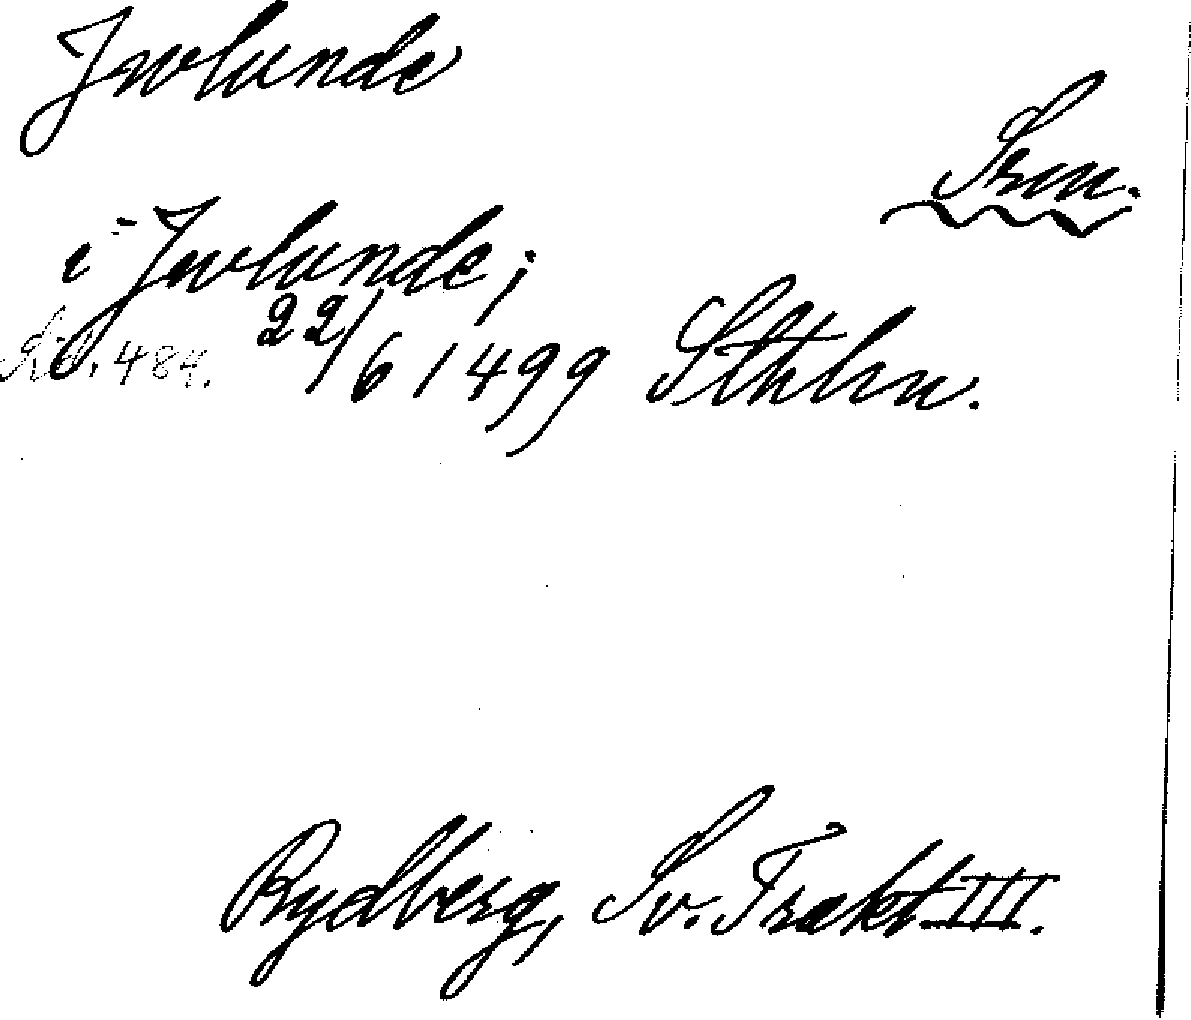 Jwlunde
Srm.
i Jwlunde;
Rd. 484. 22/6 1499 Sthlm.
Rydberg, Sv. Trakt. III.